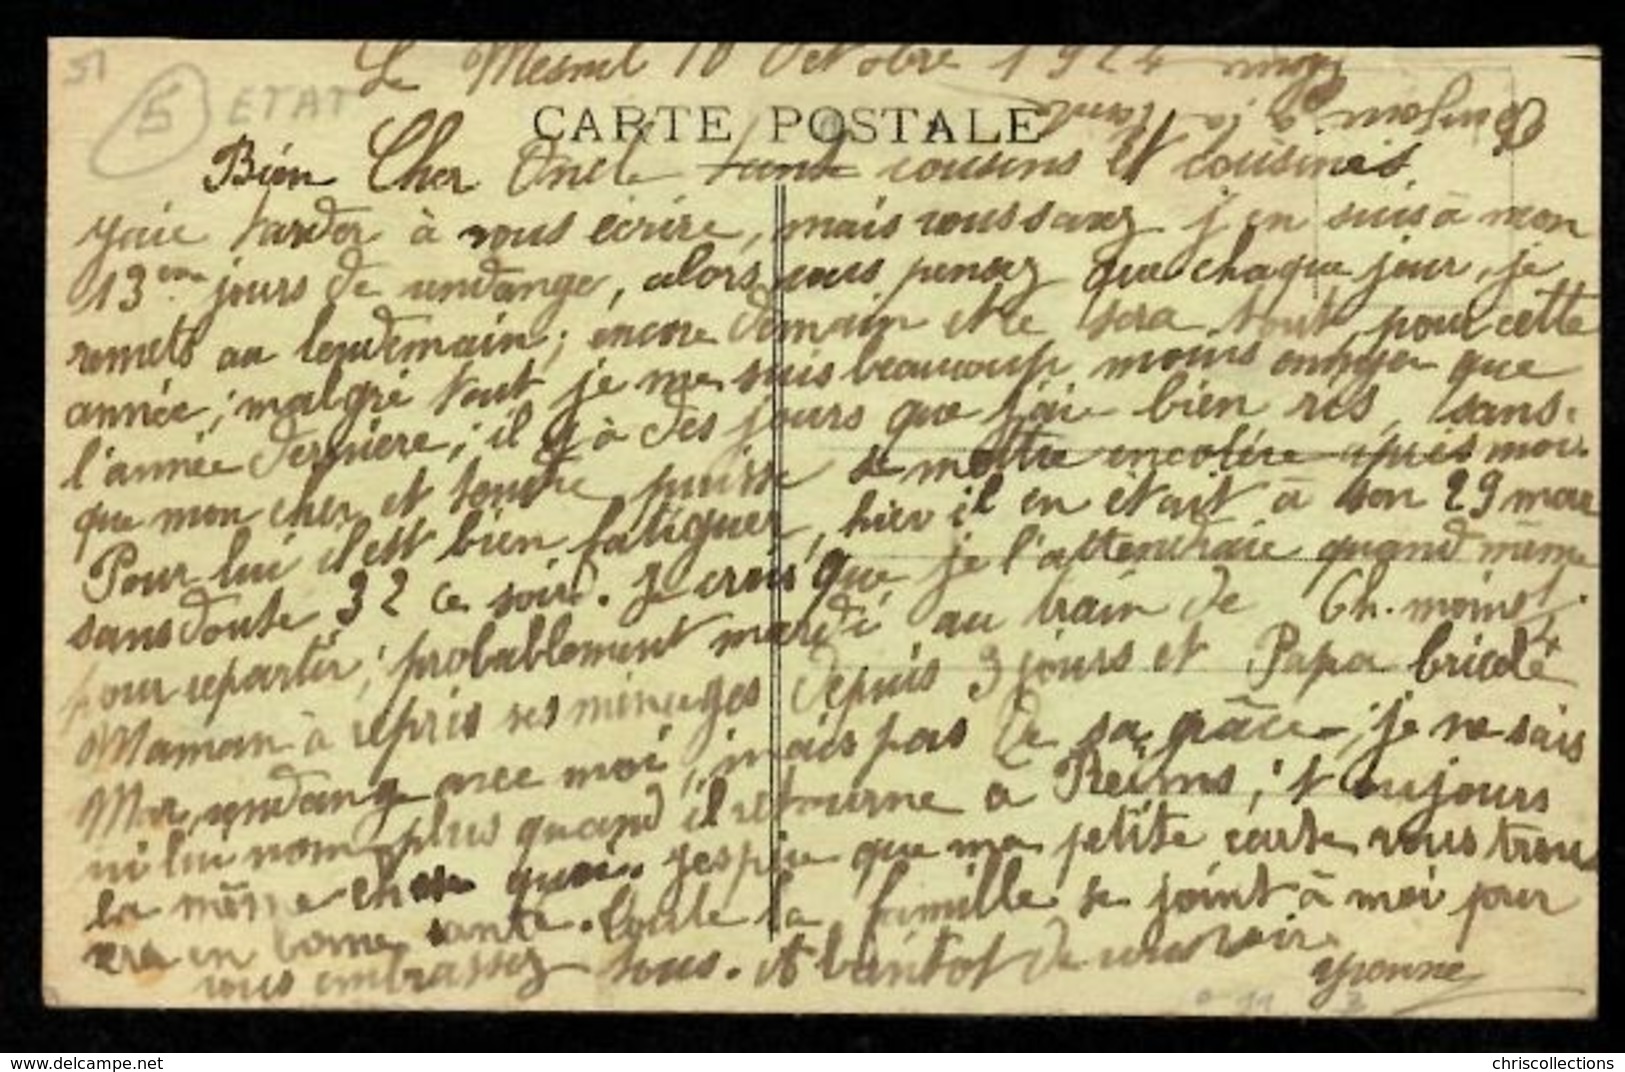 51
5 ETAT
Le Mesnil 10 Octobre 1924
Bonjour à la tante
CARTE POSTALE
Bien Cher Oncle tante cousins et cousines
J'aie tarder à vous écrire, mais vous savez j'en suis à mon
13eme jours de vendange, alors vous pensez que chaque jour, je
remets au lendemain; encore demain et ce sera tout, pour cette
année; malgré tout je me suis beaucoup moins ennuyer que
l'année dernière; il y à des jours que j'aie bien ris, sans
que mon cher et tendre puisse se mettre encolére après moi.
Pour lui il est bien fatiguer, hier il en était à son 29 mare
sans doute 32 ce soir. Je crois que je l'attendraie quand même
pour repartir; probablement mardi au train de Ch. moinet.
Maman à repris ses ménages depuis 3 jours et Papa bricole
Mar, vendange avec moi, mais pas de sa grâce; je ne sais
ni lui nom plus quand il retourne à Reims; toujours
la même chose quoi. J'espère que ma petite carte vous trou
vera en bonne santé. Toute la famille se joint à moi pour
vous embrassez tous. Et bientot de vous voir.
Yvonne
chriscollections